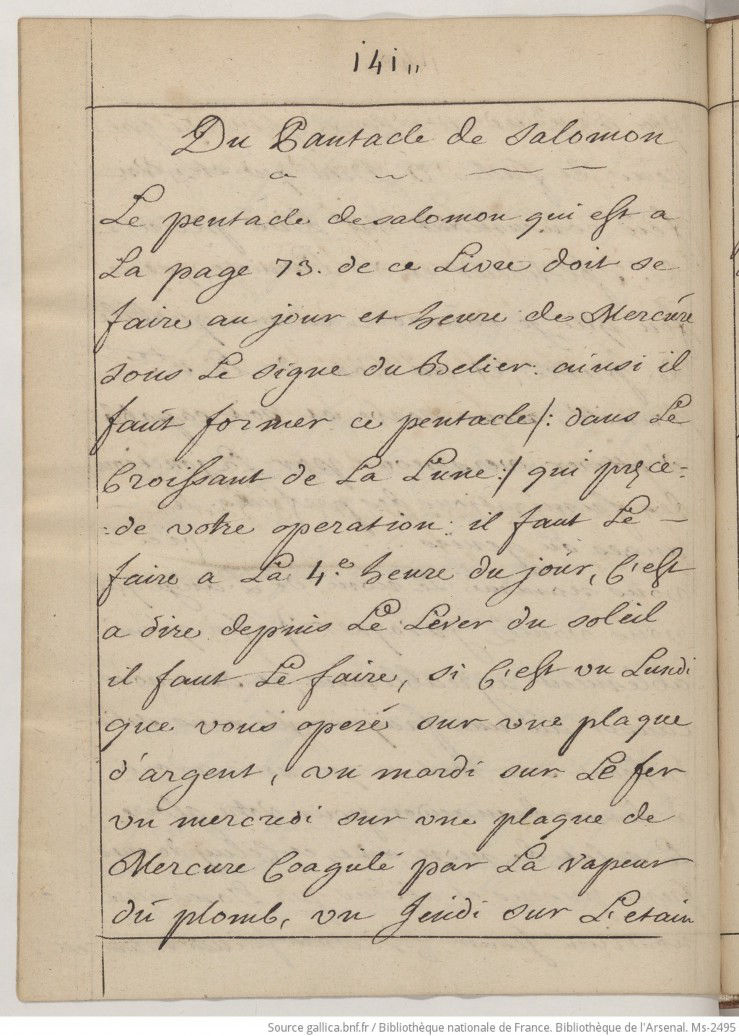 141"
Du Pantacle de Salomon
Le pentacle desalomon qui est a
La page 73. de ce Livre doit se
faire au jour et heure de Mercure
sous Le signe du Belier. ainsi il
faut former ce pentacle /: dans Le
Croissant de La Lune :/ qui prece=
=de votre operation. il faut Le —
faire a La 4.e heure du jour, C'est
a dire depuis Le Lever du soleil
il faut Le faire, si C'est un Lundi
que vous operé sur une plaque
d'argent, un mardi sur Le fer
un mercredi sur une plaque de
Mercure Coagulé par La vapeur
du plomb, un Jeudi sur L'etain
Source gallica.bnf.fr / Bibliothèque nationale de France. Bibliothèque de l'Arsenal. Ms-2495